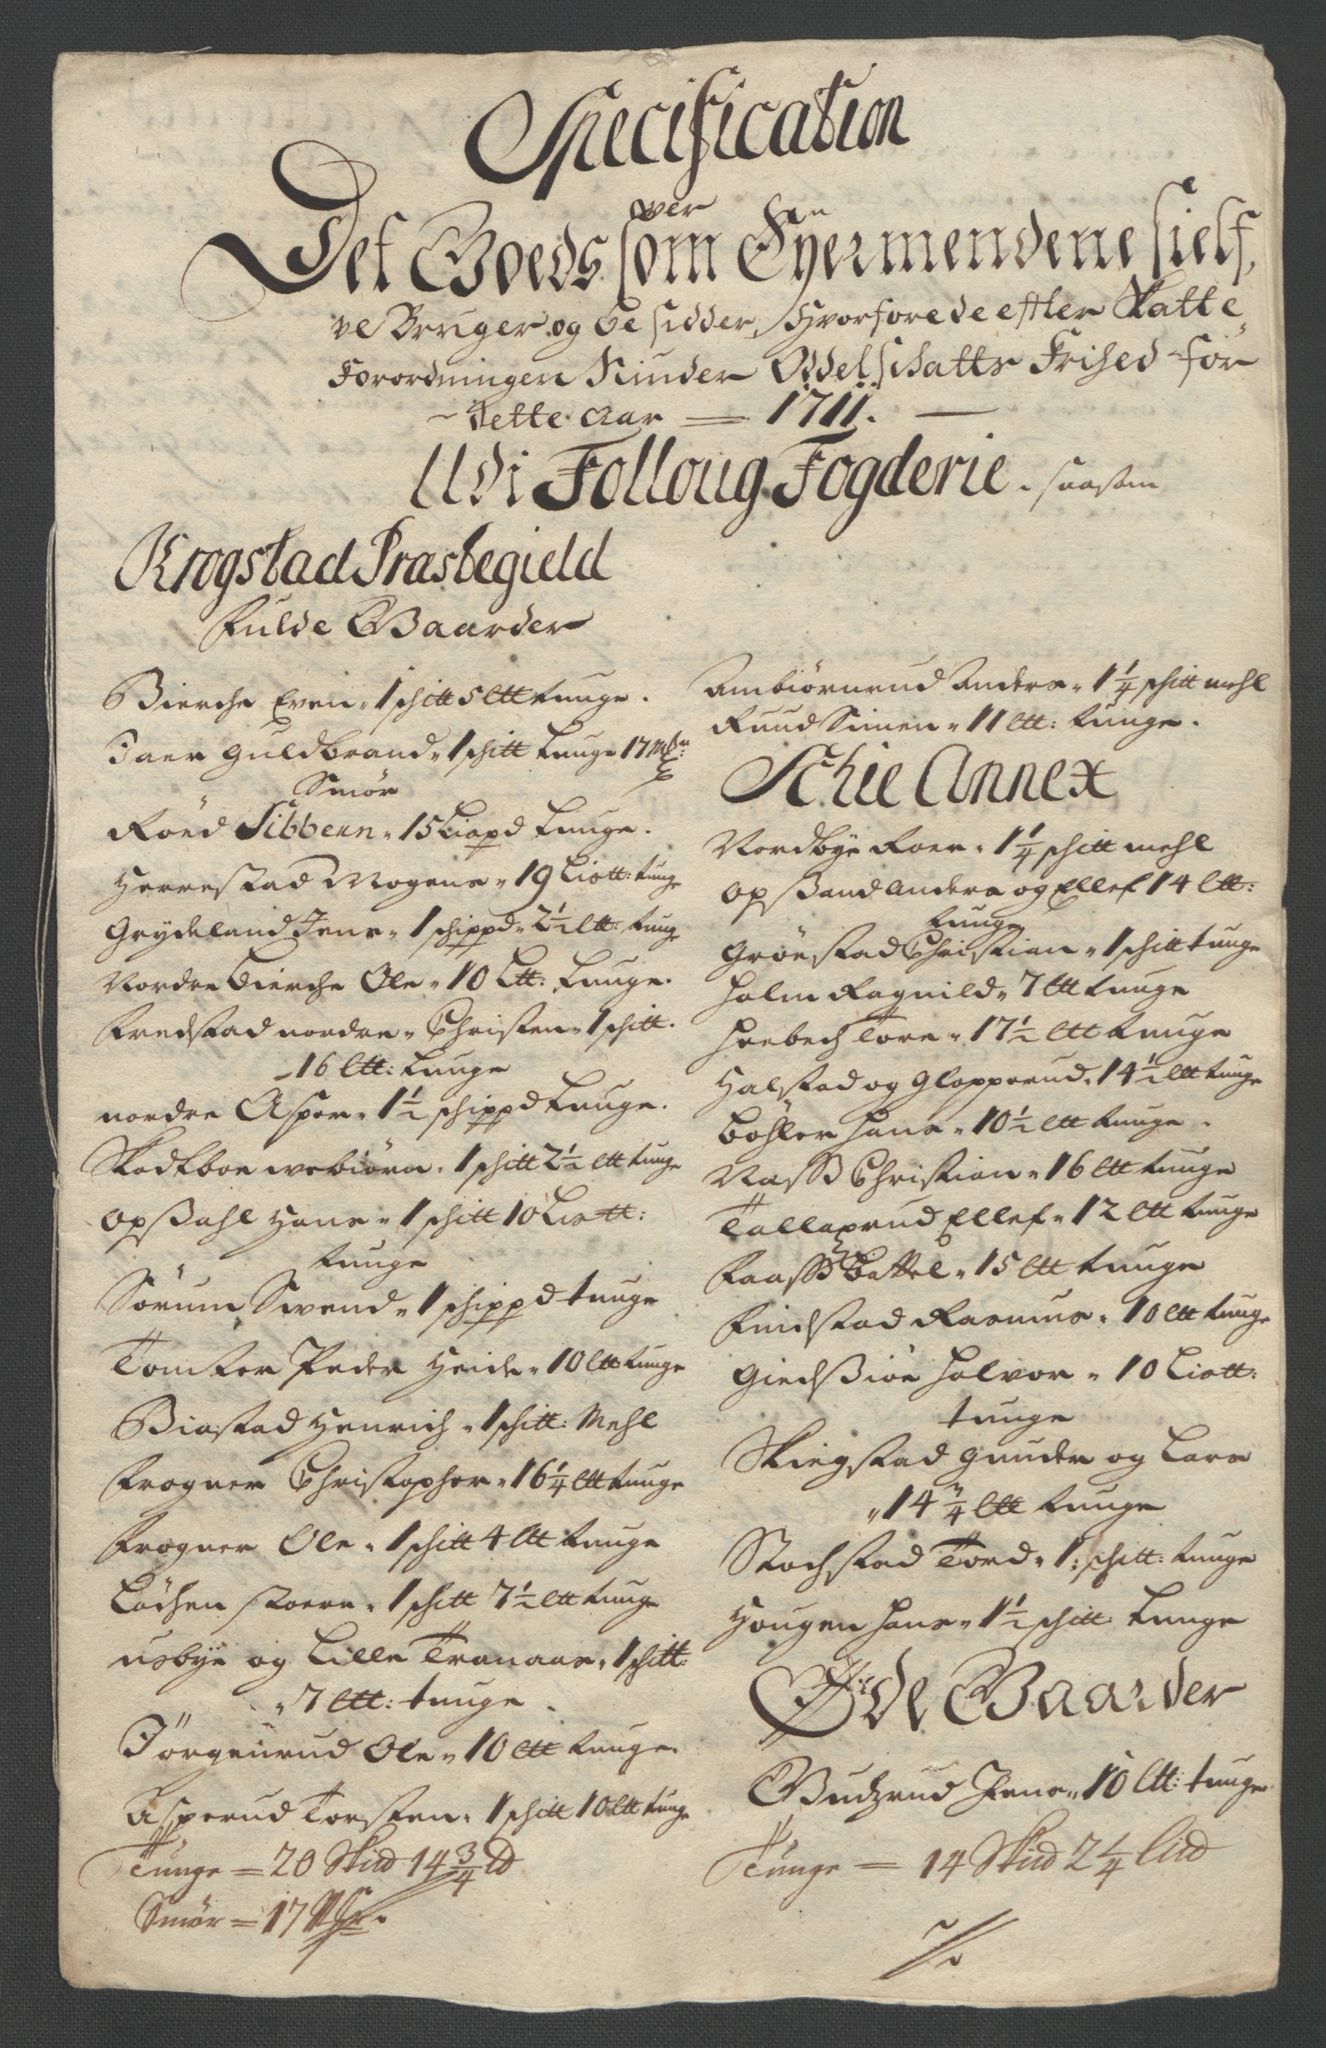 Specification
over
Det Goeds som Eÿermendene sielf,
ve Bruger og besidder, Hvorfore de effter Skatte
Forordningen Niuder Odelschatts Frihed for
dette Aar = 1711. —
Udi Folloug Fogderie. saasom
Krogstad Præstegield
Fulde Gaarder
Bierche Even " 1 schitt 5 ltt tunge.
Taer Guldbrand " 1 schitt tunge 17 Mkr:
Smør
Roed Sibbern " 15 Lispd tunge.
Herrestad Mogens " 19 Listt: tunge
Grydeland Jens " 1 schippd " 2½ ltt: tung
Nordre Bierche Ole " 10 Ltt: tunge.
Fredstad nordre " Christen " 1 schitt.
16 ltt: tunge
nordre Asper " 1½ schippd tunge.
Skodtboe webiørn " 1 schitt 2½ ltt tunge
Opsahl Hans " 1 schitt 10 Listt:
tunge
Sørum Swend " 1 schippd tunge
Tomter Peder Heide " 10 ltt tunge
Biastad Henrich " 1 schitt: Mehl
Frogner Christopher " 16¼ ltt tunge
Frogner Ole " 1 schitt 4 ltt tunge
Löchen stoere " 1 schitt 7½ ltt tunge
usbye og Lille Tranaas " 1 schitt:
" 7 ltt: tunge
Jörgenrud Ole " 10 ltt tunge.
Asperud Torsten " 1 schitt 10 ltt tunge
Tunge = 20 Skud 14¾ ld
Smør = 17 Mkr.
Ambiörnrud Anders " 1¼ schitt mehl
Ruud Simen " 11 ltt: tunge.
Schie Annex
Nordbye Roer " 1¼ schitt mehl
Opsand Anders og Ellef 14 ltt:
tunge
Gröestad Christian " 1 schitt tunge
Holm Ragnild " 7 ltt tunge
Hrebech Tore " 17½ ltt tunge
Halstad og Glopperud " 14½ ltt tunge
Böhler Hans " 10½ ltt tunge.
Næss Christian " 16 ltt tunge
Tallaxrud Ellef " 12 ltt tunge
Raass Battel " 15 ltt tunge
Finstad Rasmus " 10 ltt tunge
Giedsiöe Halvor " 10 Listt:
tunge
Skiegstad Gunder og Lars
" 14¾ ltt tunge
Stochstad Tord " 1: schitt: tunge
Hougen Hans " 1½ schitt tunge
Øde Gaarder
Gudzrud Jens " 10 ltt: tunge
Tunge = 14 Skud 2¼ lisd